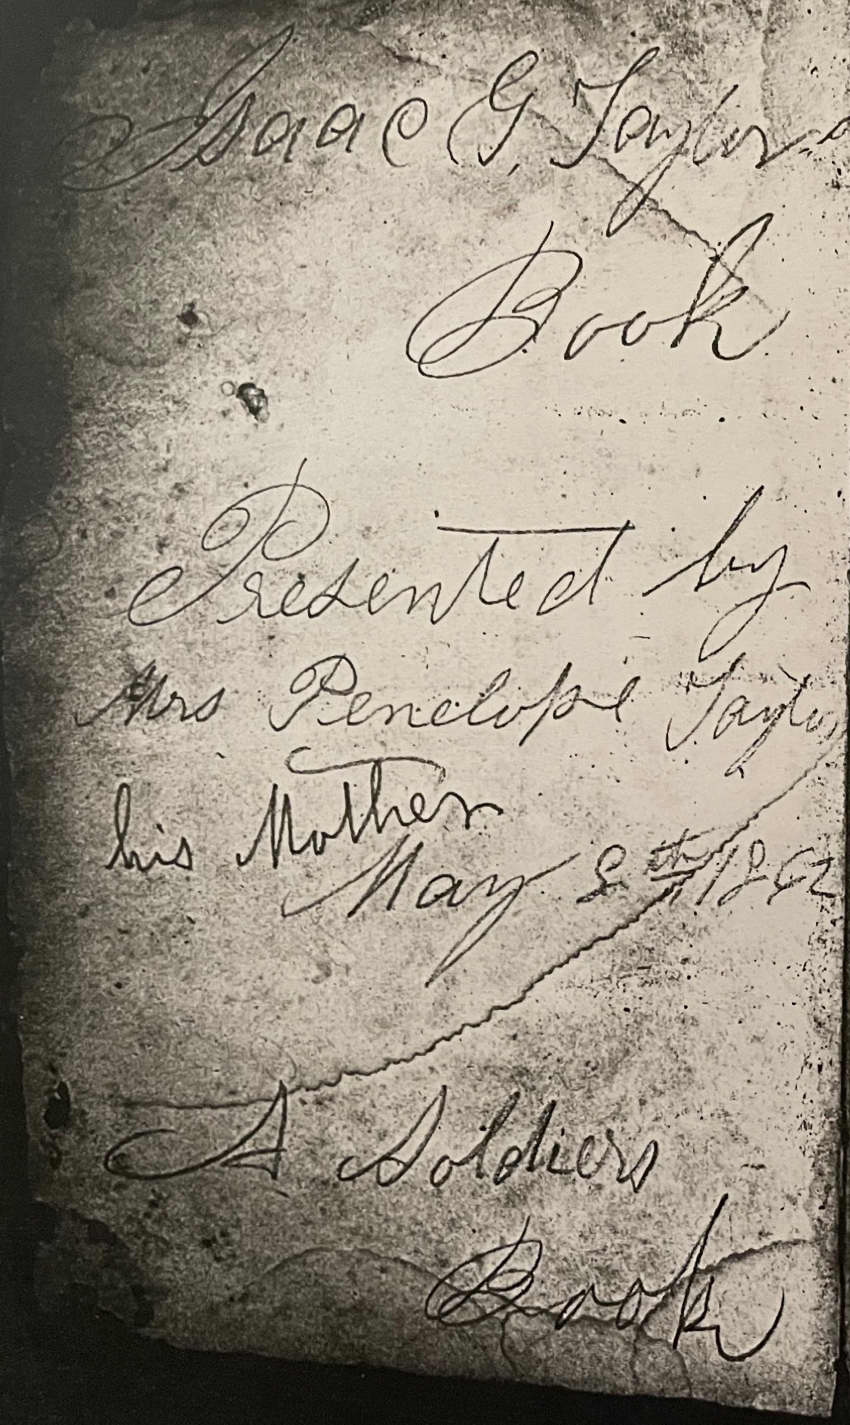 Isaac G. Taylors
Book
Presented by
Mrs Penelope Taylor
his Mother
May 8th 1862
A Soldiers
Book